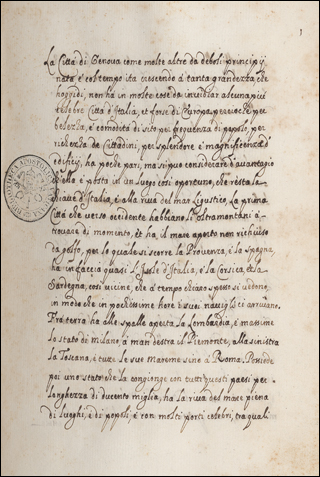 1
La Città di Genova come molte altre da deboli principij
nata è col tempo ita crescendo à tanta grandezza, che
hoggidì, non ha in molte cose da invidiar alcuna più
celebre Città d'Italia, et forse di Europa, percioche per
belezza, è comodità di sito, per frequenza di popolo, per
richezza de Cittadini, per splendore è magnificenza d'
edificij, ha poche pari, mà si può considerare d'avantagio
che ella è posta in un luogo così oportuno, che resta la
chiave d'Italia, è alla riva del mar Ligustico, La prima
Città che verso occidente habbiano l'oltramontani à
trovare di momento, et hà, il mare aperto non richiuso
da golfo, per lo quale si scorre la Provenza, è la Spagna,
ha in faccia quasi l'Isole d'Italia, ò la Corsica, et la
Sardegna, così vicine, che à tempo chiaro spesso si vedono,
in modo che in pochissime hore i suoi navigli ci arrivano.
Frà terra hà alle spalle aperta la Lombardia, è massime
lo stato di Milano, à man destra il Piemonte, alla sinistra
la Toscana, è tutte le sue Mareme sino à Roma. Possiede
poi uno stato che la congionge con tutti questi paesi per
longhezza di ducento miglia, hà la riva del mare piena
di luoghi, è di popoli, è con molti porti celebri, tra quali